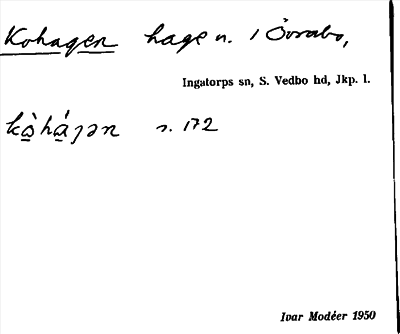 Kohagen hage n. i Övrabo,
Ingatorps sn, S. Vedbo hd, Jkp. l.
kòhájən s. 172
Ivar Modéer 1950